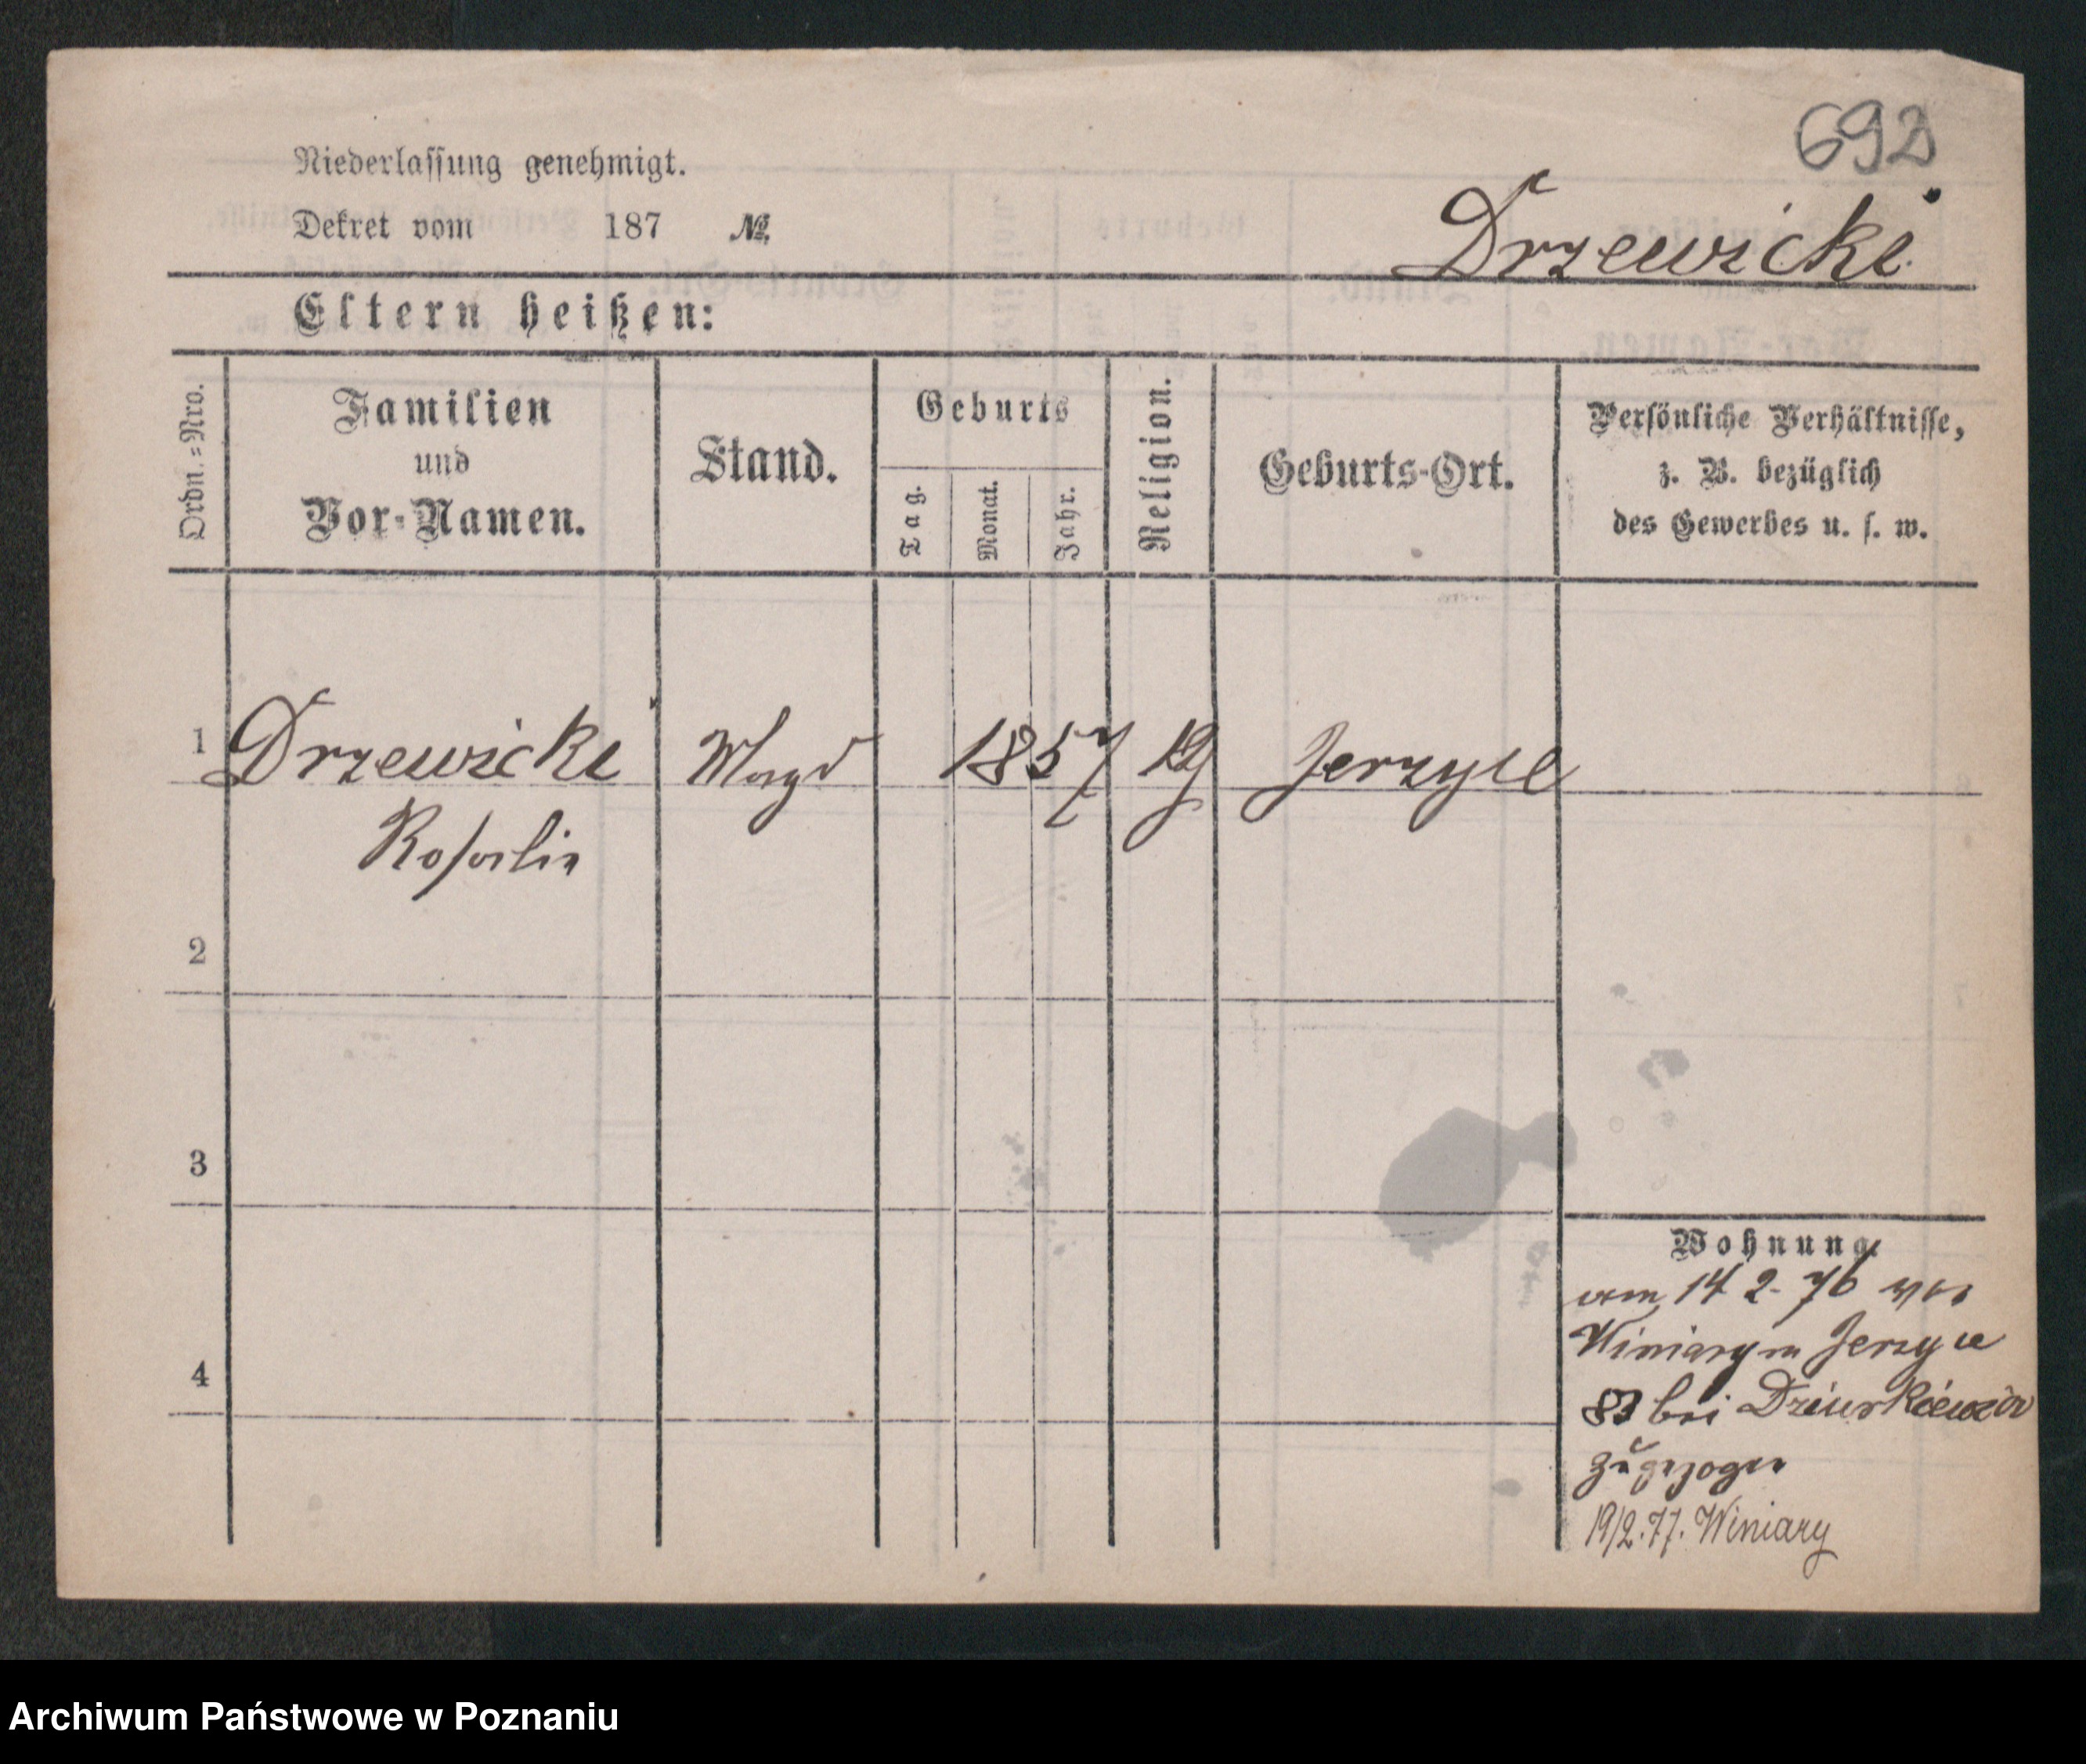 692
Niederlassung genehmigt.
Dekret vom 187 №
Drzewicki
Eltern heißen:
Ordn.=Nro.
Familien
und
Vor-Namen.
Stand.
Geburts
Tag.
Monat.
Jahr.
Religion.
Geburts-Ort.
Persönliche Verhältnisse,
z. B. bezüglich
des Gewerbes u. s. w.
1 Drzewicki Magd 1857 Jerzyce
Rosalia
2
3
4
Wohnung.
vom 14 2. 76 von
Winiary in Jerzyce
83 bei
zugezogen
19/2.77. Winiary
Archiwum Państwowe w Poznaniu